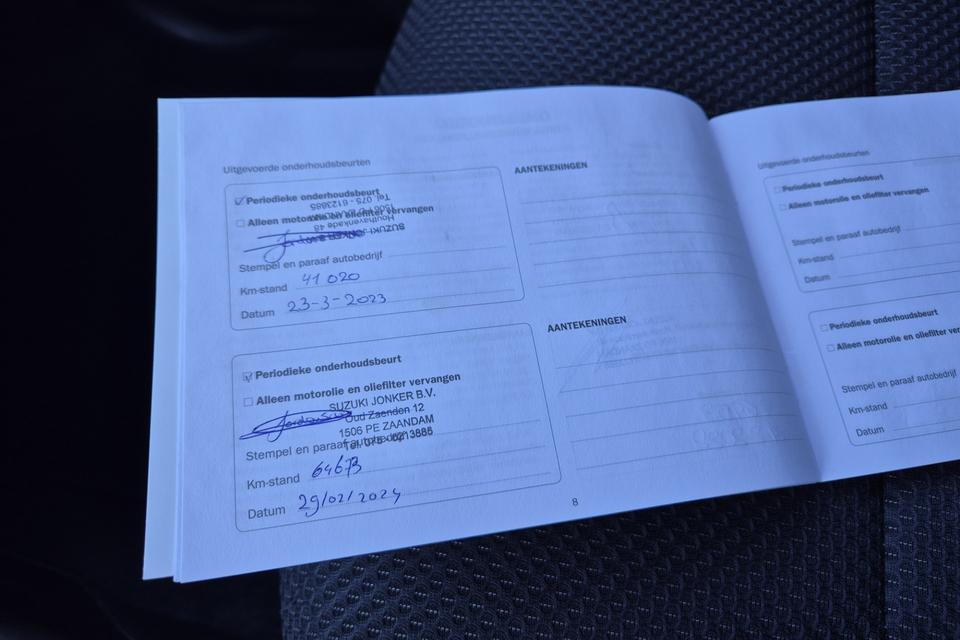 Uitgevoerde onderhoudsbeurten
Periodieke onderhoudsbeurt
Alleen motorolie en oliefilter vervangen
SUZUKI JONKER B.V.
Houthavenkade 48
1506 PD
Tel. 075 - 6123885
Stempel en paraaf autobedrijf
Km-stand 41 020
Datum 23-3-2023
AANTEKENINGEN
Periodieke onderhoudsbeurt
Alleen motorolie en oliefilter vervangen
SUZUKI JONKER B.V.
Oud Zaenden 12
1506 PE ZAANDAM
Tel. 075 -
Stempel en paraaf autobedrijf
Km-stand 64673
Datum 29/02/2024
AANTEKENINGEN
8
Uitgevoerde onderhoudsbeurten
Periodieke onderhoudsbeurt
Alleen motorolie en oliefilter vervangen
Stempel en paraaf autobedrijf
Km-stand
Datum
Periodieke onderhoudsbeurt
Alleen motorolie en oliefilter verva
Stempel en paraaf autobedrijf
Km-stand
Datum